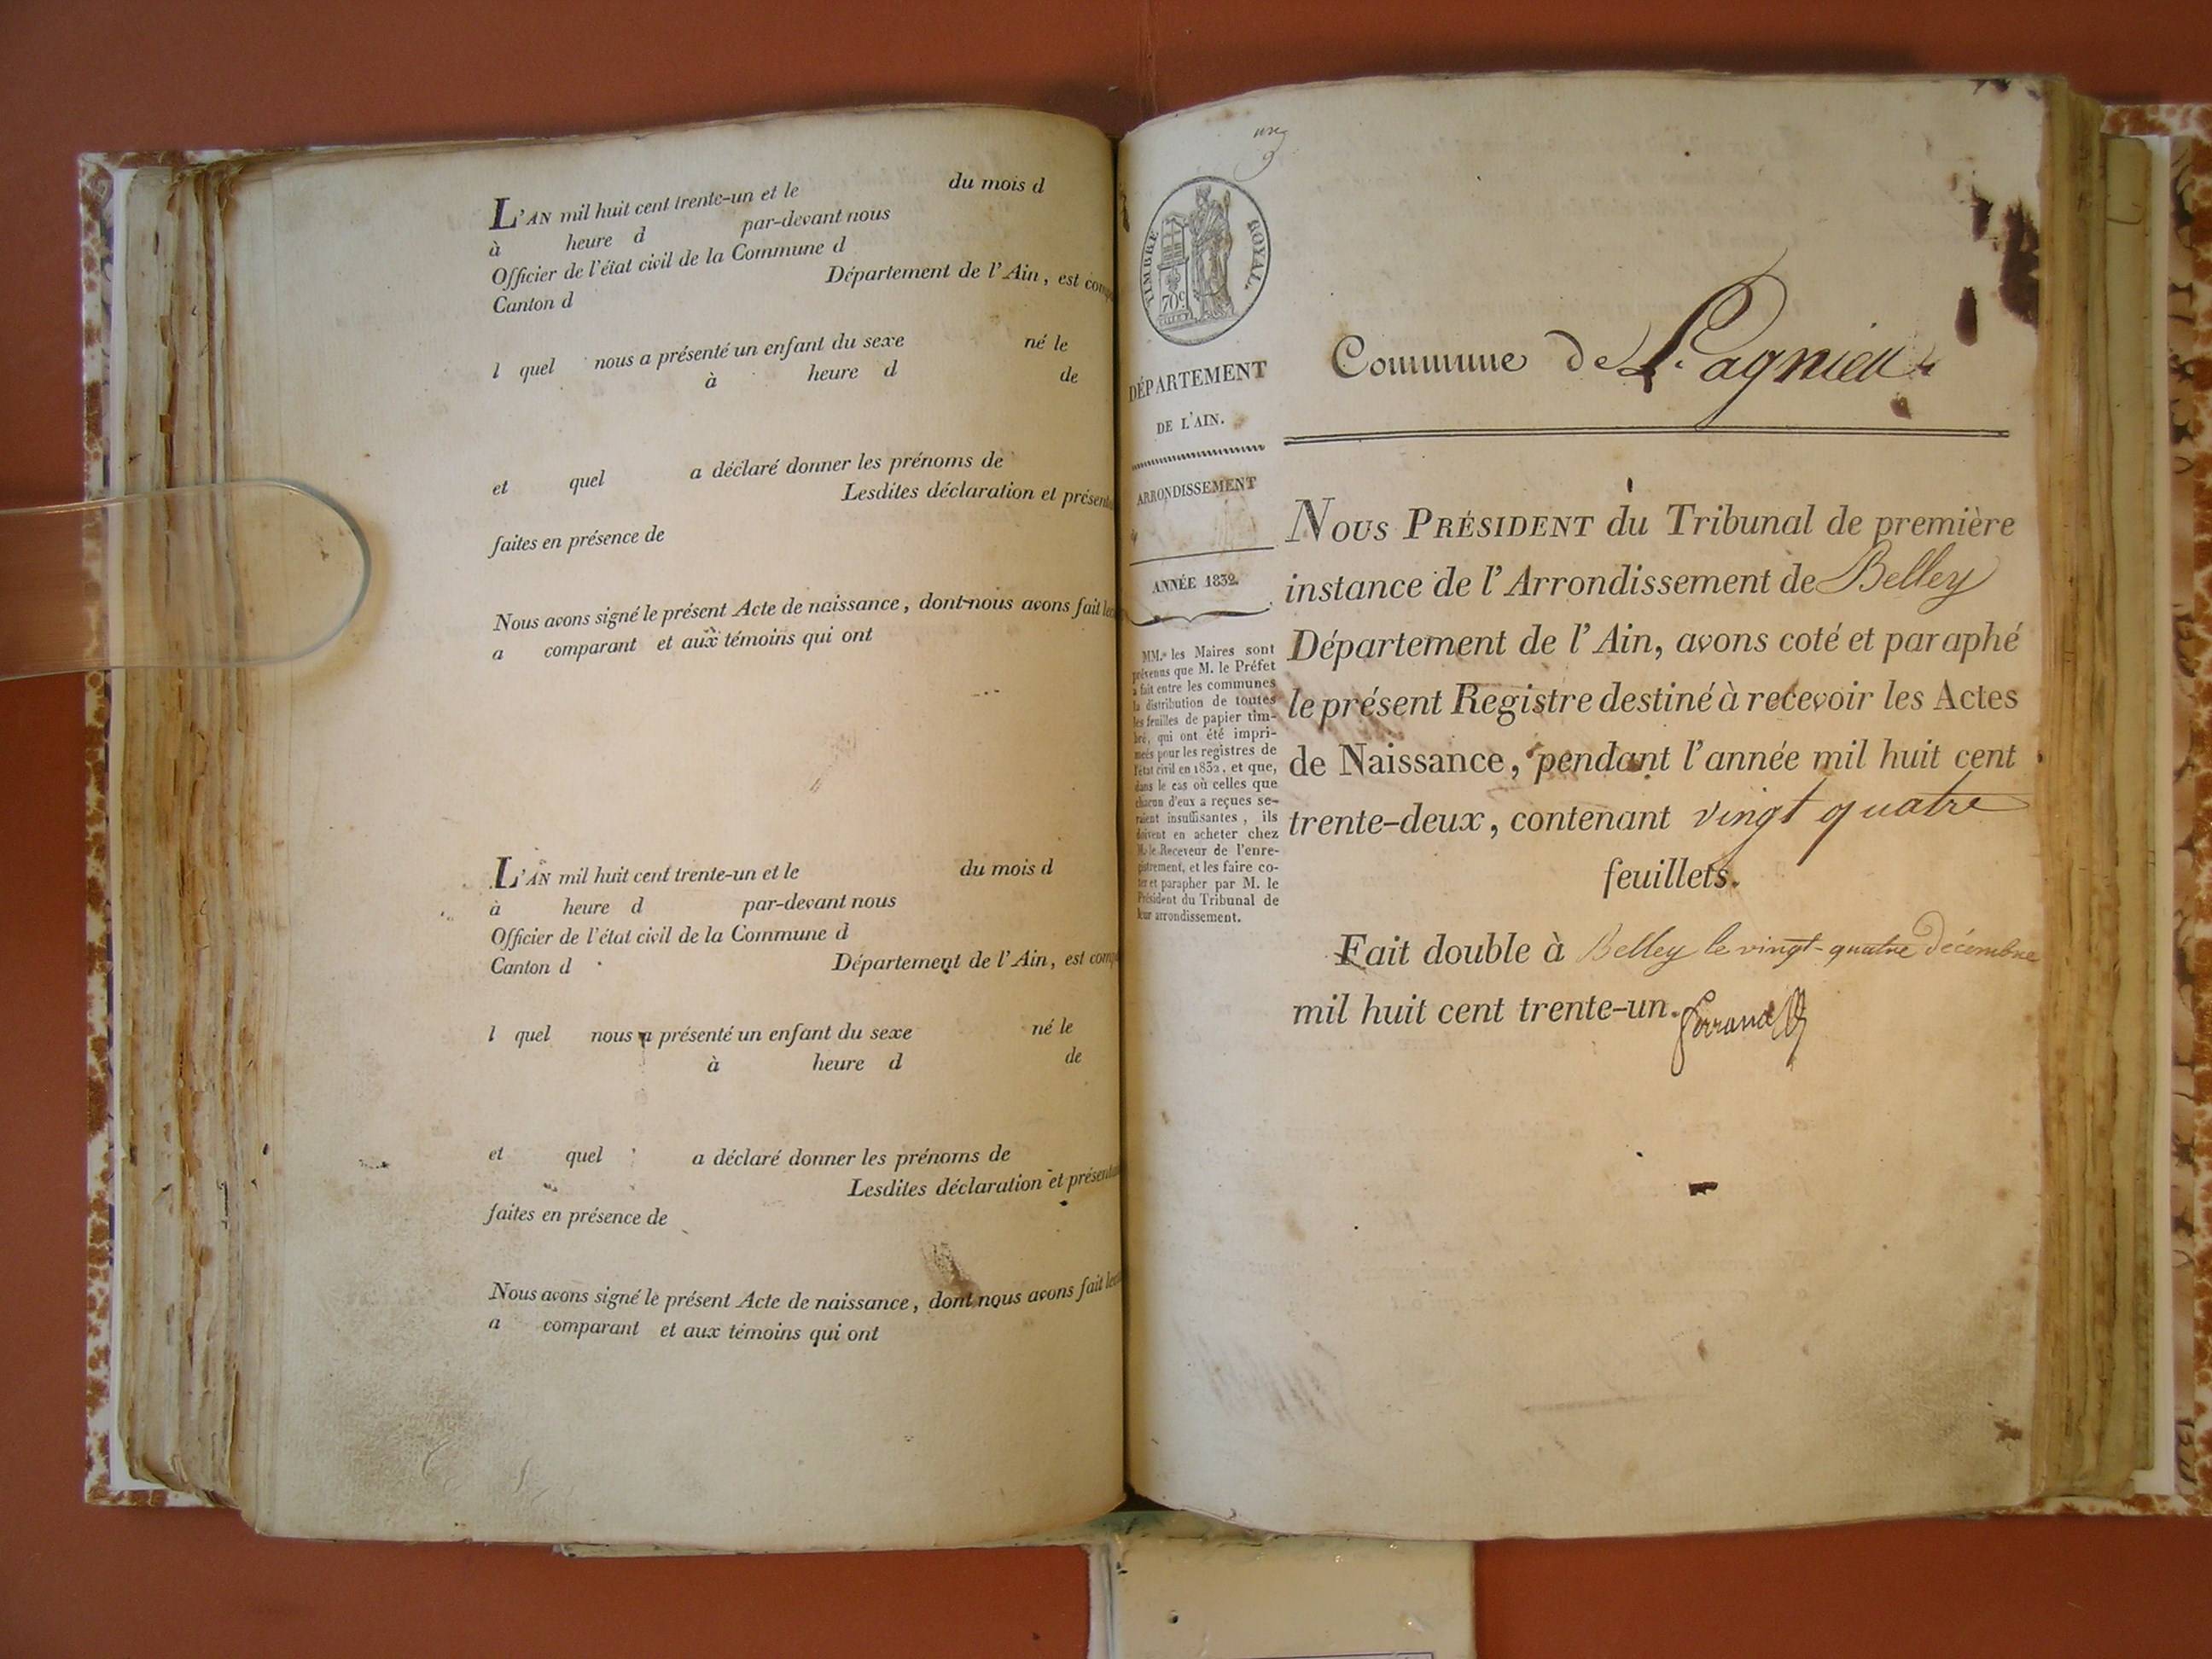 L'AN mil huit cent trente-un et le du mois d
à heure d par-devant nous
Officier de l'état civil de la Commune d
Canton d Département de l'Ain, est comp
l quel nous a présenté un enfant du sexe né le
à heure d de
et quel a déclaré donner les prénoms de
Lesdites déclaration et présent
faites en présence de
Nous avons signé le présent Acte de naissance, dont nous avons fait lec
a comparant et aux témoins qui ont
L'AN mil huit cent trente-un et le du mois d
à heure d par-devant nous
Officier de l'état civil de la Commune d
Canton d Département de l'Ain, est comp
l quel nous a présenté un enfant du sexe né le
à heure d de
et quel a déclaré donner les prénoms de
Lesdites déclaration et présenta
faites en présence de
Nous avons signé le présent Acte de naissance, dont nous avons fait lec
a comparant et aux témoins qui ont
TIMBRE ROYAL.
70c
DÉPARTEMENT
DE L'AIN.
ARRONDISSEMENT
ANNÉE 1832.
MM.rs les Maires sont
prévenus que M. le Préfet
a fait entre les communes
la distribution de toutes
les feuilles de papier tim-
bré, qui ont été impri-
mées pour les registres de
l'état civil en 1832, et que,
dans le cas où celles que
chacun d'eux a reçues se-
raient insuffisantes, ils
doivent en acheter chez
M. le Receveur de l'enre-
gistrement, et les faire co-
ter et parapher par M. le
Président du Tribunal de
leur arrondissement.
Commune de Lagnieu
NOUS PRÉSIDENT du Tribunal de première
instance de l'Arrondissement de Belley
Département de l'Ain, avons coté et paraphé
le présent Registre destiné à recevoir les Actes
de Naissance, pendant l'année mil huit cent
trente-deux, contenant vingt quatre
feuillets.
Fait double à Belley le vingt-quatre décembre
mil huit cent trente-un.